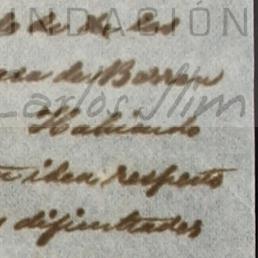 FUNDACIÓN
de los
casa de Barron
Carlos Slim
Habiendo
idea respecto
dificultades